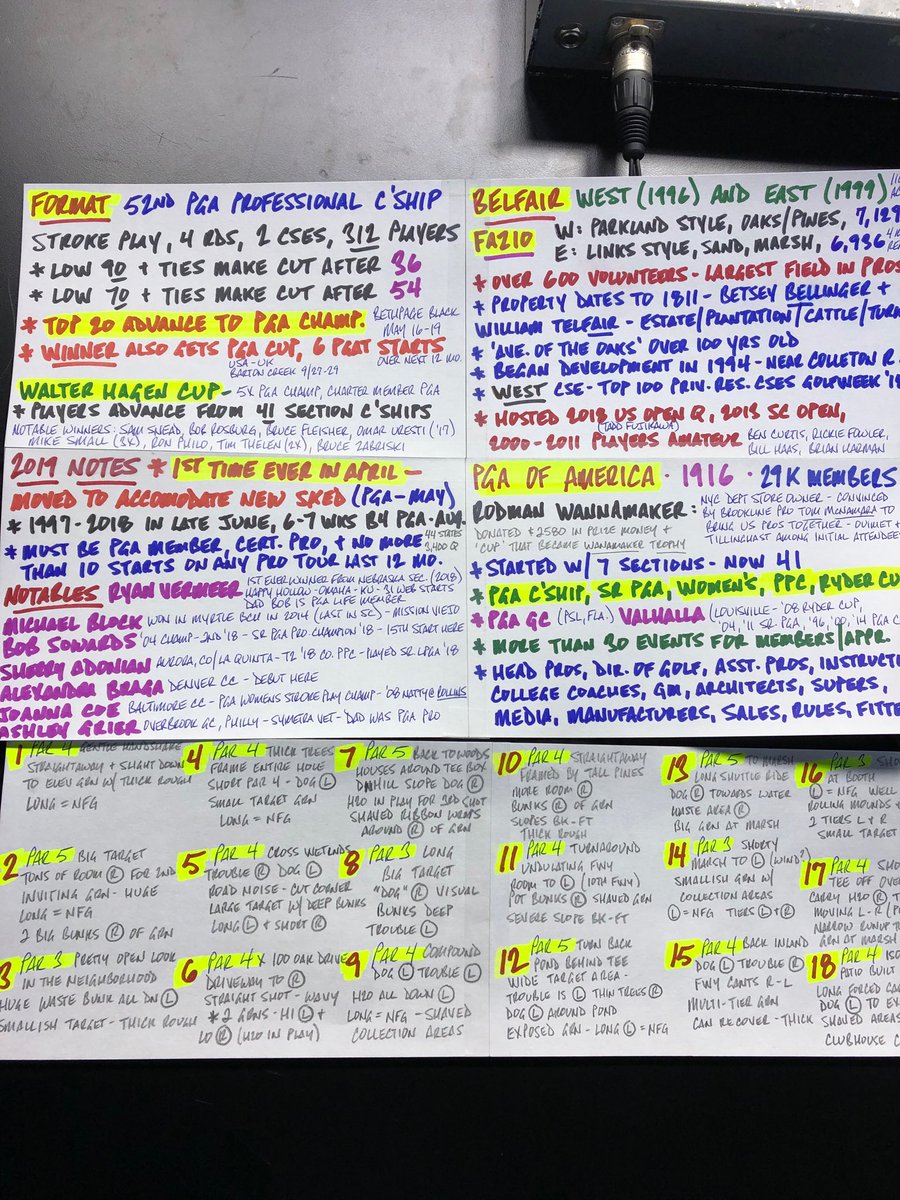 FORMAT 52ND PGA PROFESSIONAL C'SHIP
STROKE PLAY, 4 RDS, 2 CSES, 312 PLAYERS
* LOW 90 + TIES MAKE CUT AFTER 36
* LOW 70 + TIES MAKE CUT AFTER 54
* TOP 20 ADVANCE TO PGA CHAMP. BETHPAGE BLACK
MAY 16-19
* WINNER ALSO GETS PGA CUP, 6 PGAT STARTS
USA-UK OVER NEXT 12 MO.
BARTON CREEK 9/27-29
WALTER HAGEN CUP - 5X PGA CHAMP, CHARTER MEMBER PGA
* PLAYERS ADVANCE FROM 41 SECTION C'SHIPS
NOTABLE WINNERS: SAM SNEAD, BOB ROSBURG, BRUCE FLEISHER, OMAR URESTI ('17)
MIKE SMALL (3X), RON PHILO, TIM THELEN (2X), BRUCE ZABRISKI
BELFAIR WEST (1996) AND EAST (1999)
FAZIO W: PARKLAND STYLE, OAKS/PINES, 7,129
E: LINKS STYLE, SAND, MARSH, 6,936
* OVER 600 VOLUNTEERS - LARGEST FIELD IN PROS
* PROPERTY DATES TO 1811 - BETSEY BELLINGER +
WILLIAM TELFAIR - ESTATE/PLANTATION/CATTLE/TURN
* 'AVE. OF THE OAKS' OVER 100 YRS OLD
* BEGAN DEVELOPMENT IN 1994 - NEAR COLLETON R.
* WEST CSE - TOP 100 PRIV. RES. CSES GOLFWEEK '1
* HOSTED 2018 US OPEN Q, 2013 SC OPEN,
(TADD FUJIKAWA)
2000-2011 PLAYERS AMATEUR BEN CURTIS, RICKIE FOWLER,
BILL HAAS, BRIAN HARMAN
2019 NOTES * 1ST TIME EVER IN APRIL -
MOVED TO ACCOMODATE NEW SKED (PGA-MAY)
* 1997-2018 IN LATE JUNE, 6-7 WKS B4 PGA-AUG.
* MUST BE PGA MEMBER, CERT. PRO, + NO MORE 44 STATES
3,400 Q
THAN 10 STARTS ON ANY PRO TOUR LAST 12 MO.
NOTABLES RYAN VERMEER 1ST EVER WINNER FROM NEBRASKA SEC. (2018)
HAPPY HOLLOW - OMAHA - KU - 31 WEB STARTS
DAD BOB IS PGA LIFE MEMBER
MICHAEL BLOCK WON IN MYRTLE BCH IN 2014 (LAST IN SC) - MISSION VIEJO
BOB SOWARDS '04 CHAMP - 2ND '18 - SR PGA PRO CHAMPION '18 - 15TH START HERE
SHERRY ADONIAN AURORA, CO/LA QUINTA - T2 '18 CO. PPC - PLAYED SR LPGA '18
ALEXANDRA BRAGA DENVER CC - DEBUT HERE
JOANNA COE BALTIMORE CC - PGA WOMENS STROKE PLAY CHAMP - '08 NATTY @ ROLLINS
ASHLEY GRIER OVERBROOK GC, PHILLY - SYMETRA VET - DAD WAS PGA PRO
PGA OF AMERICA - 1916 - 29K MEMBERS
RODMAN WANNAMAKER: NYC DEPT STORE OWNER - CONVINCED
BY BROOKLINE PRO TOM McNAMARA TO
DONATED $2580 IN PRIZE MONEY + BRING US PROS TOGETHER - OUIMET +
'CUP' THAT BECAME WANAMAKER TROPHY TILLINGHAST AMONG INITIAL ATTENDEES
* STARTED W/ 7 SECTIONS - NOW 41
* PGA C'SHIP, SR PGA, WOMEN'S, PPC, RYDER CU
* PGA GC (PSL, FLA.) VALHALLA (LOUISVILLE - '08 RYDER CUP,
'04, '11 SR PGA, '96, '00, '14 PGA C
* MORE THAN 30 EVENTS FOR MEMBERS/APPR.
* HEAD PROS, DIR. OF GOLF, ASST. PROS, INSTRUCTI
COLLEGE COACHES, GM, ARCHITECTS, SUPERS,
MEDIA, MANUFACTURERS, SALES, RULES, FITTE
1 PAR 4 GENTLE HANDSHAKE
STRAIGHTAWAY + SLIGHT DOWN
TO ELEV GRN W/ THICK ROUGH
LONG = NFG
4 PAR 4 THICK TREES
FRAME ENTIRE HOLE
SHORT PAR 4 - DOG L
SMALL TARGET GRN
LONG = NFG
7 PAR 5 BACK TO WOODS
HOUSES AROUND TEE BOX
DNHILL SLOPE DOG R
H2O IN PLAY FOR 3RD SHOT
SHAVED RIBBON WRAPS
AROUND R OF GRN
2 PAR 5 BIG TARGET
TONS OF ROOM R FOR 2ND
INVITING GRN - HUGE
LONG = NFG
2 BIG BUNKS R OF GRN
5 PAR 4 CROSS WETLNDS
TROUBLE R DOG L
ROAD NOISE - CUT CORNER
LARGE TARGET W/ DEEP BUNKS
LONG L + SHORT R
8 PAR 3 LONG
BIG TARGET
"DOG" R VISUAL
BUNKS DEEP
TROUBLE L
3 PAR 3 PRETTY OPEN LOOK
IN THE NEIGHBORHOOD
HUGE WASTE BUNK ALL DN L
SMALLISH TARGET - THICK ROUGH
6 PAR 4 X 100 OAK DRIVE
DRIVEWAY TO R
STRAIGHT SHOT - WAVY
* 2 GRNS - HI L +
LO R (H2O IN PLAY)
9 PAR 4 COMPOUND
DOG L TROUBLE L
H2O ALL DOWN L
LONG = NFG - SHAVED
COLLECTION AREAS
10 PAR 4 STRAIGHTAWAY
FRAMED BY TALL PINES
MORE ROOM R
BUNKS R OF GRN
SLOPES BK-FT
THICK ROUGH
13 PAR 5 TO MARSH
LONG SHUTTLE RIDE
DOG R TOWARDS WATER
WASTE AREA R
BIG GRN AT MARSH
16 PAR 3 SHO
AT BOOTH
L = NFG WELL
ROLLING MOUNDS +
2 TIERS L + R
SMALL TARGET
11 PAR 4 TURNAROUND
UNDULATING FWY
ROOM TO L (10TH FWY)
POT BUNKS R SHAVED GRN
SEVERE SLOPE BK-FT
14 PAR 3 SHORTY
MARSH TO L (WIND?)
SMALLISH GRN W/
COLLECTION AREAS
L = NFG TIERS L + R
17 PAR 4 SHO
TEE OFF OVER
CARRY H2O R T
MOVING L-R (P
NARROW RUNUP T
GRN AT MARSH
12 PAR 5 TURN BACK
POND BEHIND TEE
WIDE TARGET AREA -
TROUBLE IS L THIN TREES R
DOG L AROUND POND
EXPOSED GRN - LONG L = NFG
15 PAR 4 BACK INLAND
DOG L TROUBLE R
FWY CANTS R-L
MULTI-TIER GRN
CAN RECOVER - THICK
18 PAR 4 ISO
PATIO BUILT
LONG FORCED CA
DOG L TO EX
SHAVED AREAS
CLUBHOUSE C